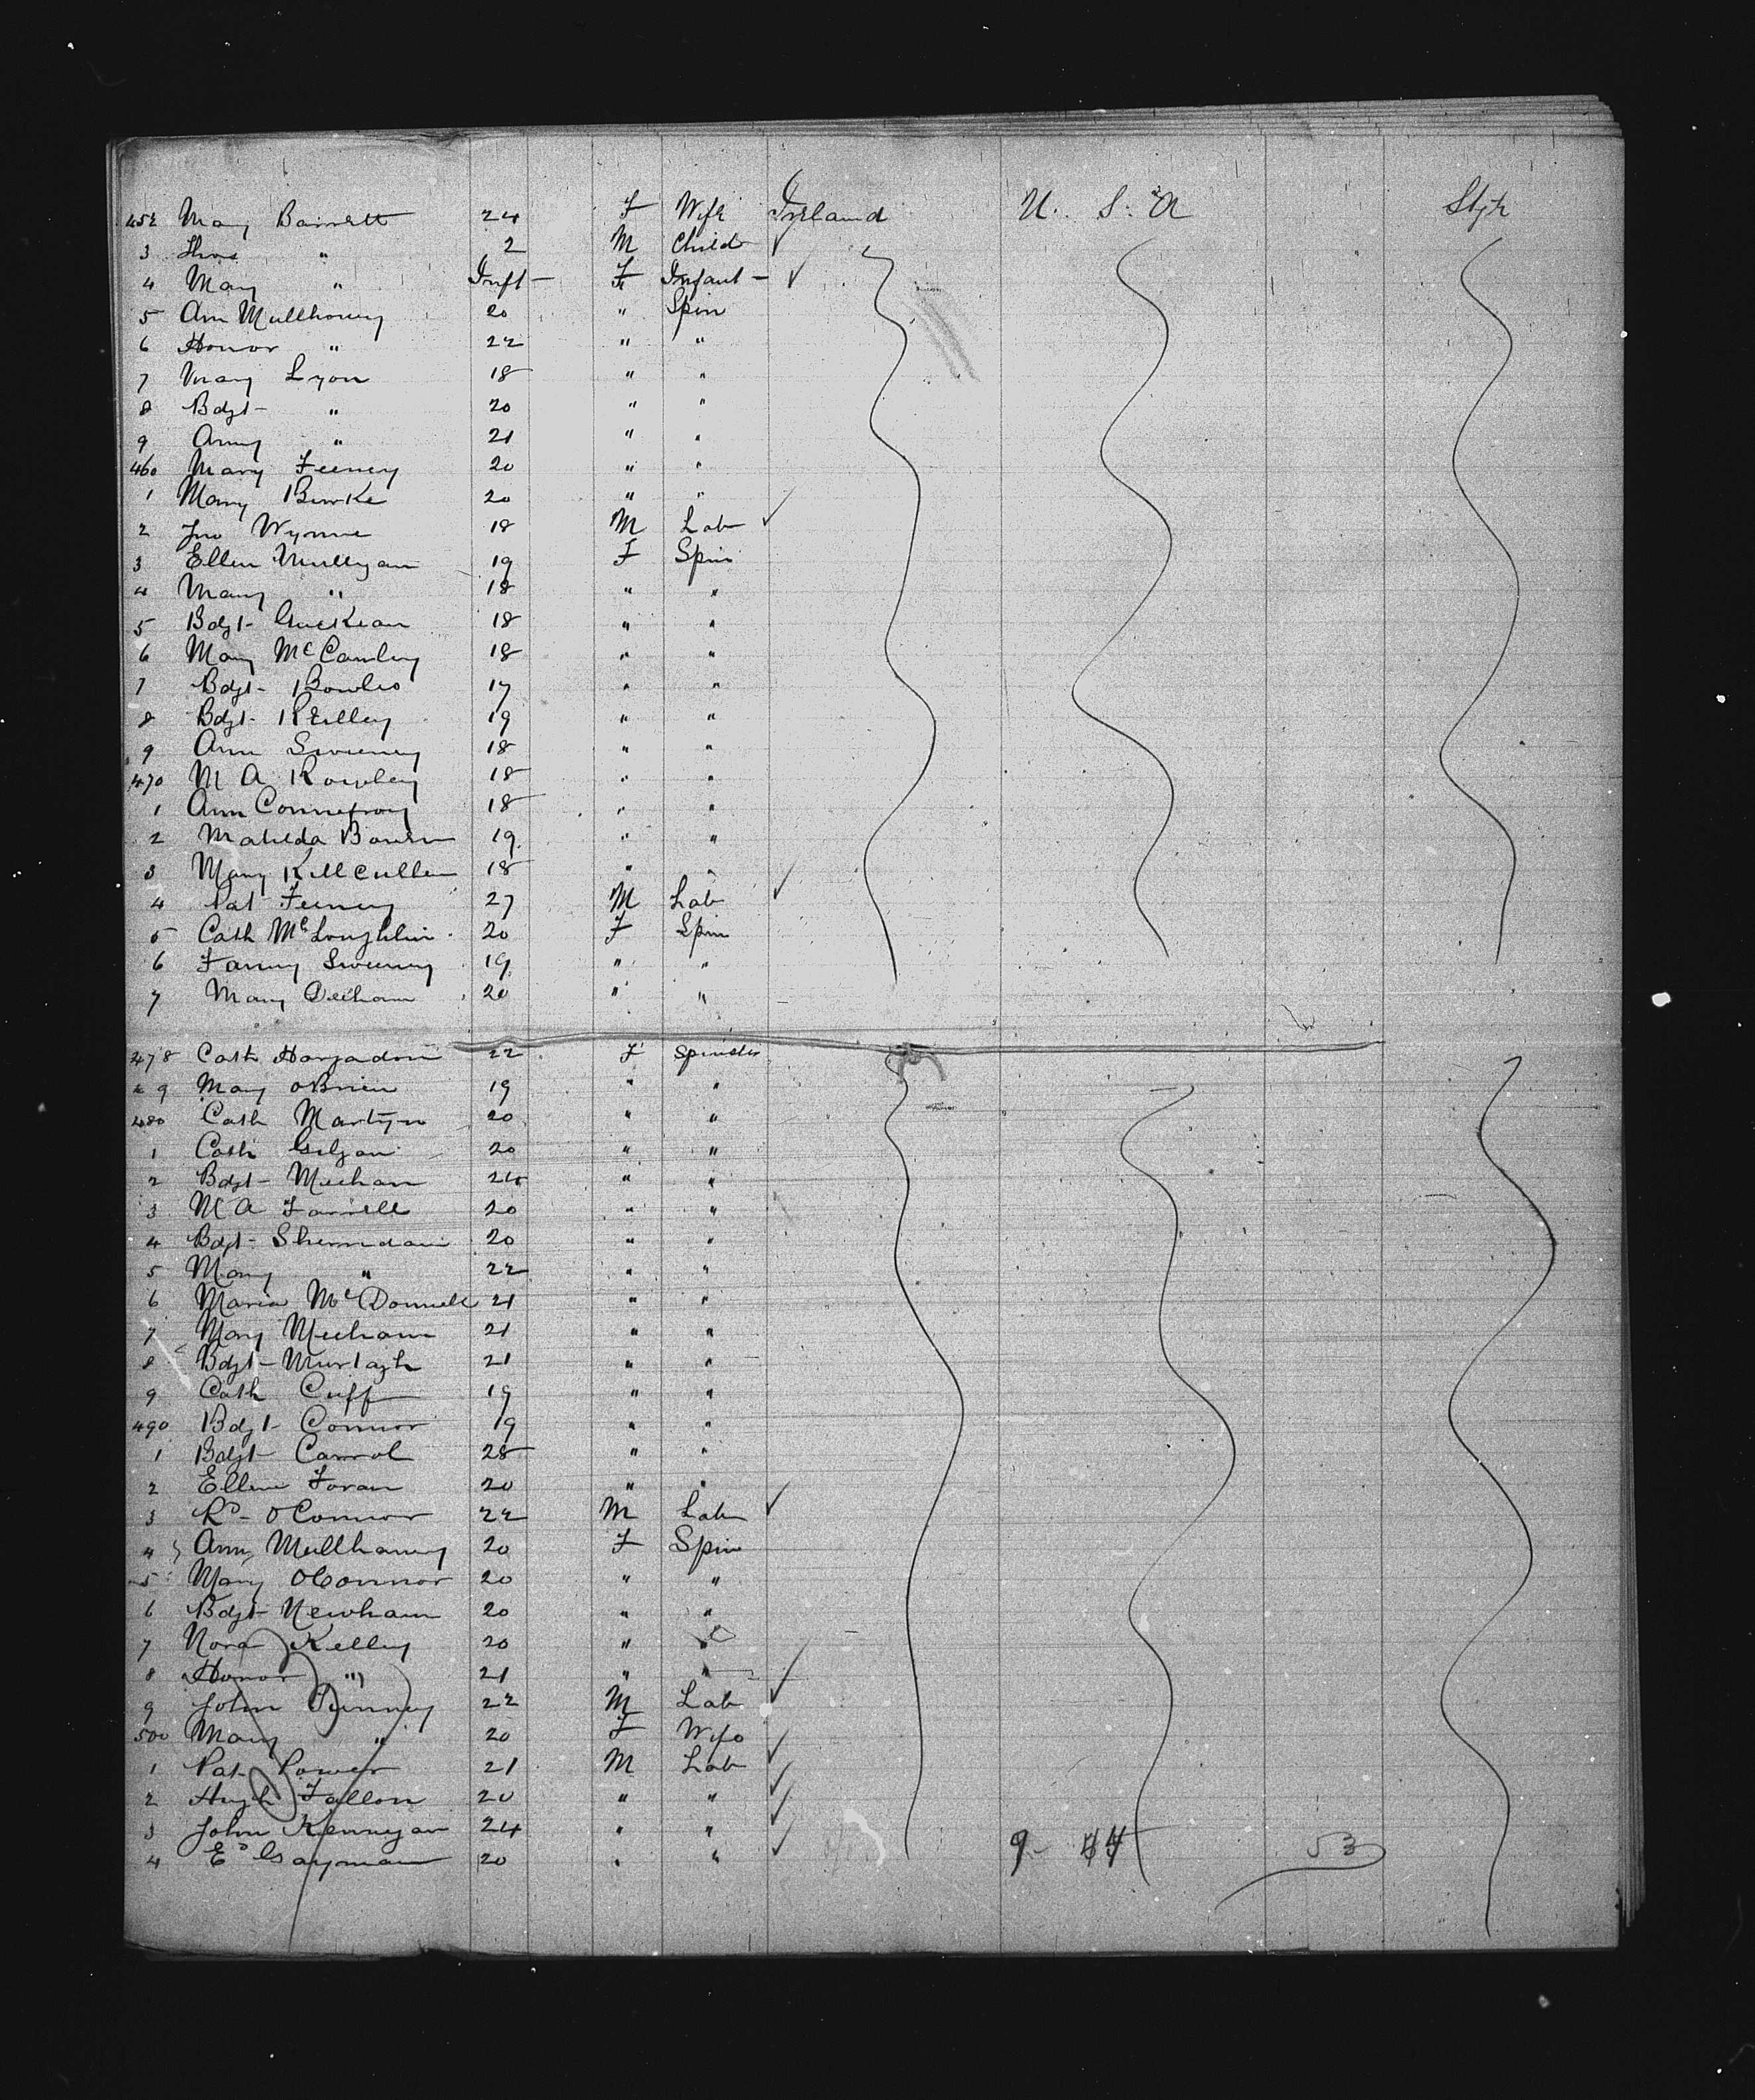 452 Mary Barrett 24 F Wife Ireland U. S. A Stge
3 Thos " 2 M Child ✓
4 Mary " Inft F Infant ✓
5 Ann Mullhoney 20 " Spin
6 Honor " 22 " "
7 Mary Lyon 18 " "
8 Bdgt " 20 " "
9 Anny " 21 " "
460 Mary Feeney 20 " "
1 Mary Burke 20 " "
2 Jno Wynne 18 M Lab ✓
3 Ellen Mulligan 19 F Spin
4 Mary " 18 " "
5 Bdgt Guckian 18 " "
6 Mary McCauley 18 " "
7 Bdgt Bowles 17 " "
8 Bdgt Reilley 19 " "
9 Ann Sweeney 18 " "
470 M A Rowley 18 " "
1 Ann Connefrey 18 " "
2 Matilda Bowen 19 " "
3 Mary Killcullen 18 " "
4 Pat Feeney 27 M Lab ✓
5 Cath McLoughlin 20 F Spin
6 Fanny Sweeney 19 " "
7 Mary Deehan 20 " "
478 Cath Hargadon 22 F Spinster
9 Mary OBrien 19 " "
480 Cath Martyn 20 " "
1 Cath Gilgan 20 " "
2 Bdgt Meehan 24 " "
3 M A Farrell 20 " "
4 Bdgt Sherridan 20 " "
5 Mary " 22 " "
6 Maria McDonnell 21 " "
7 Mary Meehan 21 " "
8 Bdgt Murtagh 21 " "
9 Cath Cuff 19 " "
490 Bdgt Connor 19 " "
1 Bdgt Carrol 28 " "
2 Ellen Foran 20 " "
3 Rd OConnor 22 M Lab ✓
4 Ann Mullhaney 20 F Spin
5 Mary OConnor 20 " "
6 Bdgt Newham 20 " "
7 Nora Kelley 20 " "
8 Honor " 21 " " ✓
9 John 22 M Lab ✓
500 Mary " 20 F Wife ✓
1 Pat Power 21 M Lab ✓
2 Hugh Fallon 20 " " ✓
3 John Kennegan 24 " " ✓
4 Ed 20 " " 9 44 53